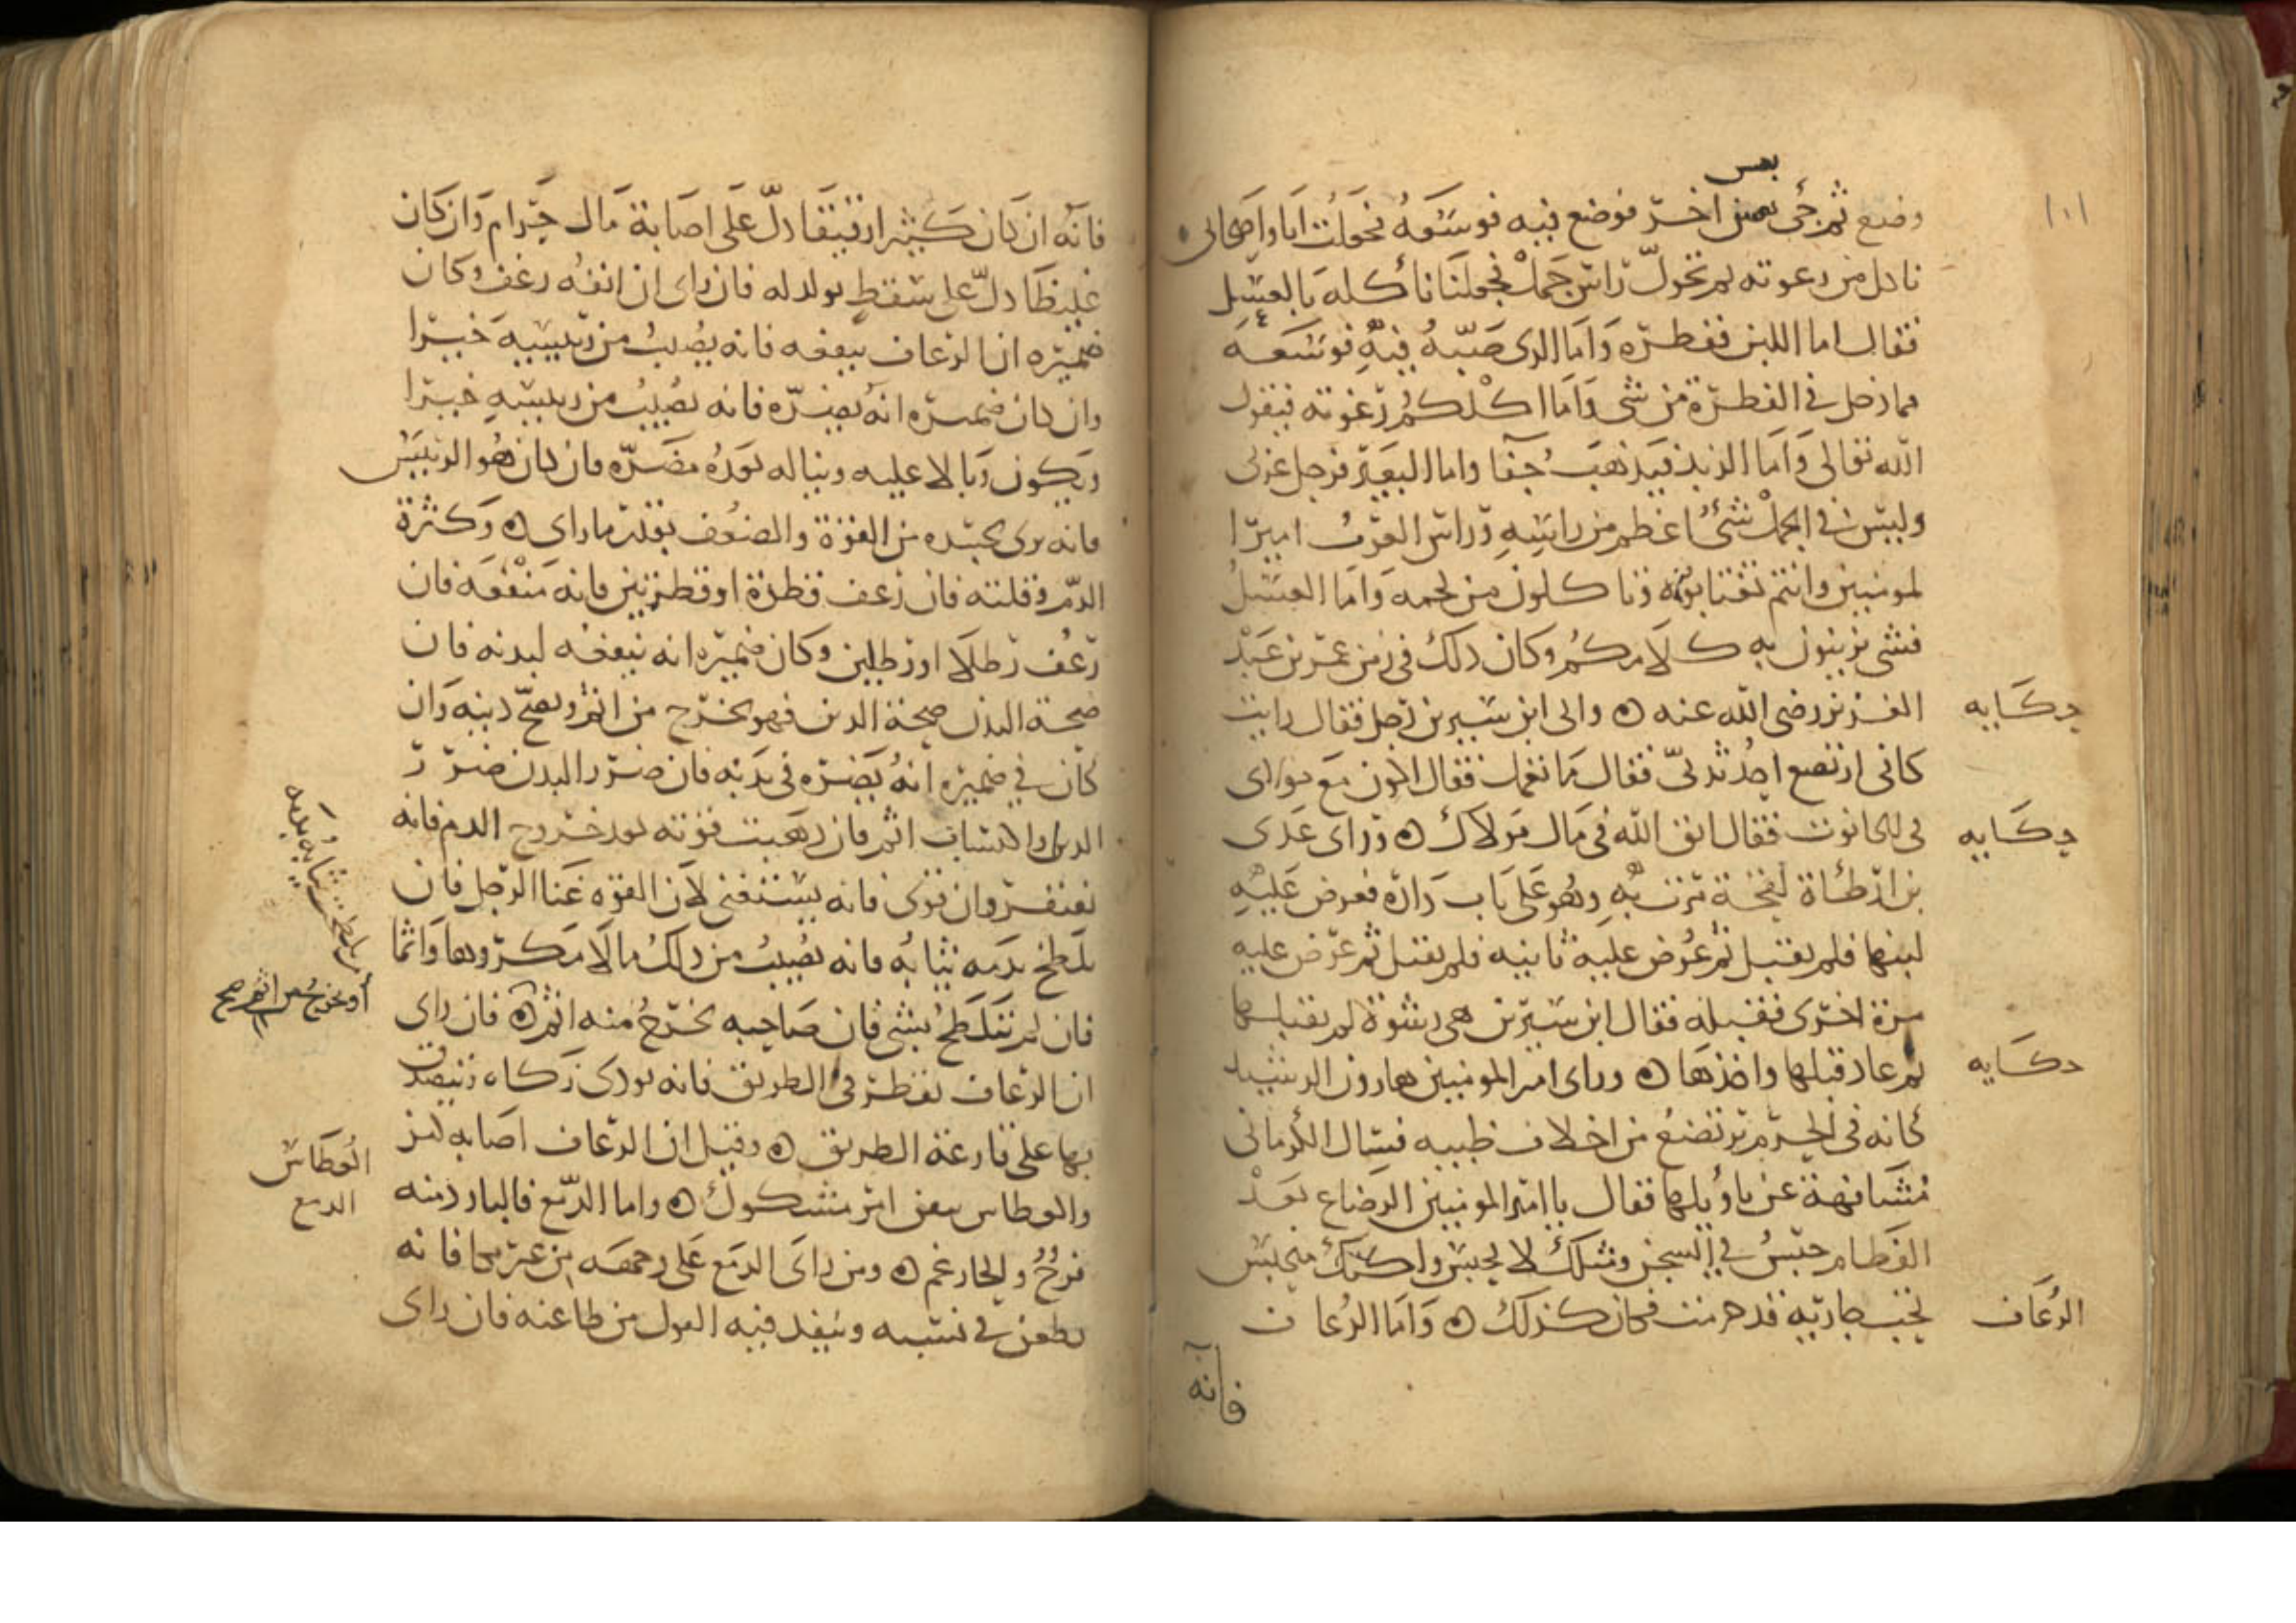 ١٠١
بعس
وضع ثم جئ بعس اخر فوضع فيه فوسعه فجعلت انا واصحابى
ناكل من رغوته ثم تحول راس جمل فجعلنا ناكله بالعسل
فقال اما اللبن ففطره واما الذى صببه فيه فوسعه
فما دخل فى الفطرة من شى واما اكلكم رغوته فيقول
الله تعالى واما الزبد فيذهب جفا واما البعير فرجل عربى
وليس فى الجمل شئ اعظم من راسه وراس العرب امير ا
لمومنين وانتم تغتابونه وتاكلون من لحمه واما العسل
فشى تزينون به كلامكم وكان ذلك فى زمن عمر بن عبد
حكايه
العزيز رضى الله عنه ه واتى ابن سيرين رجل فقال رايت
كانى ارتضع احد ثديى فقال ما تعمل فقال اكون مع مولاى
حكايه
فى الحانوت فقال اتق الله فى مال مولاك ه وراى عدى
بن ارطاة لقحة مرت به وهو على باب داره فعرض عليه
لبنها فلم يقبل ثم عرض عليه ثانيه فلم يقبل ثم عرض عليه
مرة اخرى فقبله فقال ابن سيرين هى رشوة لم يقبلها
حكايه
ثم عاد قبلها واخذها ه وراى امير المومنين هارون الرشيد
كانه فى الحرم يرتضع من اخلاف ظبيه فسال الكرمانى
مشافهة عن تاويلها فقال يا امير المومنين الرضاع بعد
الفطام حبس فى السجن ومثلك لا يحبس ولكنك منحبس
الرعاف
بحب جاريه قد حرمت فكان كذلك ه واما الرعاف
فانه
فانه ان كان كثيرا رقيقا دل على اصابة مال حرام وان كان
غليظا دل على سقط يولد له فان راى ان انفه رعف وكان
ضميره ان الرعاف ينفعه فانه يصيب من رييسه خيرا
وان كان ضميره انه يضره فانه يصيب من رييسه خيرا
ويكون وبالا عليه ويناله بعده مضره فان كان هو الرييس
فانه يرى بجسده من القوة والضعف بقدر ما راى ه وكثرة
الدم وقلته فان رعف قطرة او قطرتين فانه منفعه فان
رعف رطلا او رطلين وكان ضميره انه ينفعه لبدنه فان
صحة البدن صحة الدين فهو يخرج من اثم ويصح دينه وان
كان فى ضميره انه يضره فى بدنه فان ضرر البدن ضرر
الدين واكتساب اثم فان ذهبت قوته بعد خروج الدم فانه
يفتقر وان قوى فانه يستغنى لان القوه غنا الرجل فان
تلطخ بدمه ثيابه فانه يصيب من ذلك مالا مكروها واثما
او يخرج من اثم صح
فان لم تتلطخ بشى فان صاحبه يخرج منه اثم ه فان راى
ان الرعاف يقطر فى الطريق فانه يودى زكاه ويتصدق
بها على قارعة الطريق ه وقيل ان الرعاف اصابه كنز
العطاس
والعطاس تيقن امر مشكوك ه واما الدمع فالبارد منه
الدمع
فرح والحار غم ه ومن راى الدمع على وجهه من غير بكا فانه
يطعن فى نسبه وينفد فيه القول من طاعنه فان راى